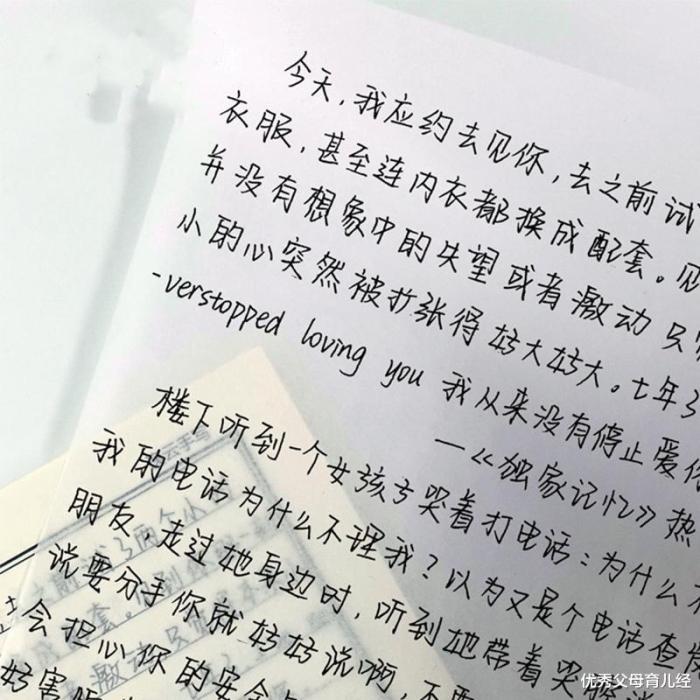 今天,我应约去见你,去之前试
衣服,甚至连内衣都换成配套。见
并没有想象中的失望或者激动只
小的心突然被扩张得好大好大。七年
-verstopped loving you 我从来没有停止爱
—《独家记忆》热
楼下听到一个女孩子哭着打电话:为什么不
我的电话为什么不理我?以为又是个电话查
朋友,走过她身边时,听到她带着哭
说要分手你就好好说啊,不
会担心你的安全
好害
云手写
了两个小
套
激动只
优秀父母育儿经